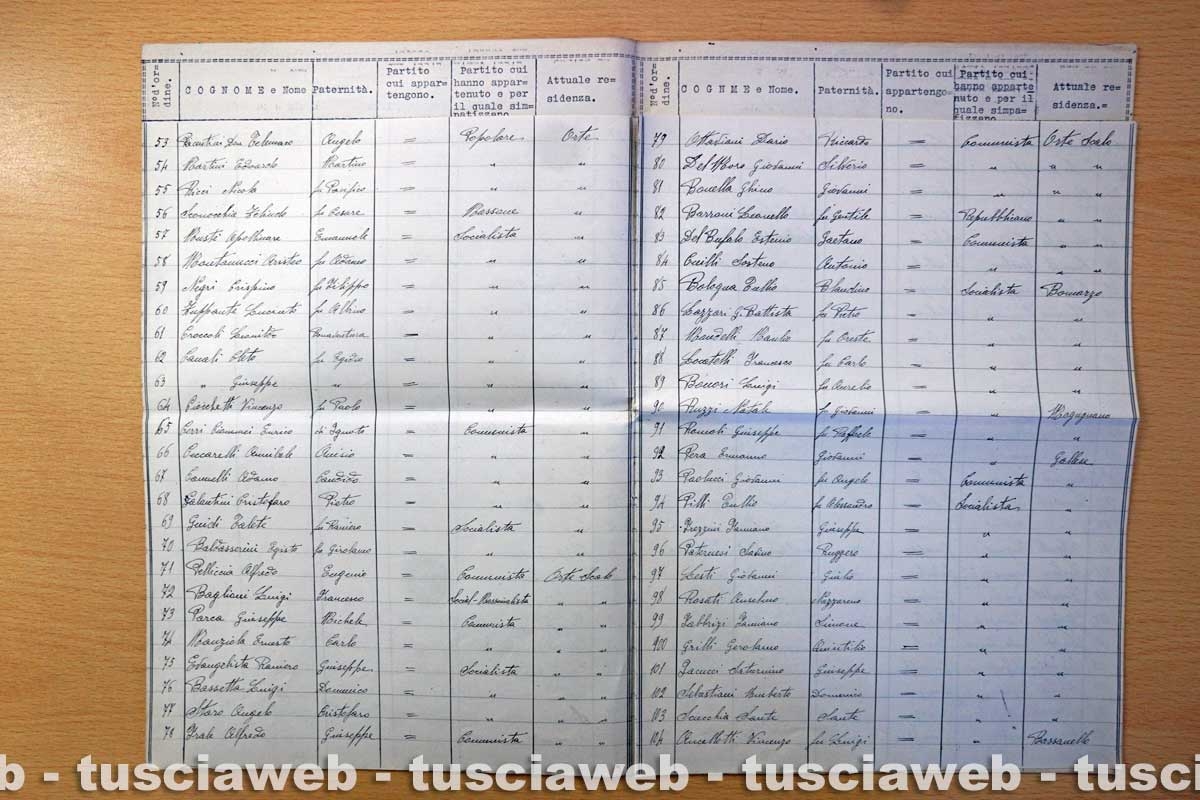 N°d'or=
dine.
COGNOME e Nome
Paternità.
Partito
cui appar=
tengono.
Partito cui
hanno appar=
tenuto e per
il quale sim=
patizzano
Attuale re=
sidenza.
53 Don Telemaco Angelo Popolare Orte
54 Martini Edoardo Martino = " "
55 Ricci Nicola fu Pacifico = " "
56 fu Cesare = Massone "
57 Musti Apollinare Emanuele = Socialista "
58 Montanucci fu Adamo = " "
59 Negri Crispino fu Filippo = " "
60 Zuppante fu Albino = " "
61 Croccoli Bonaventura = " "
62 Canali Cleto fu Egidio = " "
63 " Giuseppe " = " "
64 Ciocchetti Vincenzo fu Paolo = " "
65 Enrico di Ignoto = Comunista "
66 Ceccarelli Annibale = " "
67 Cannelli Adamo Candido = " "
68 Galantini Cristofaro Pietro = " "
69 Guidi Talete fu Raniero = Socialista "
70 Baldasserini Egisto fu Girolamo = " "
71 Pelliccia Alfredo Eugenio = Communista Orte Scalo
72 Bagliani Luigi Francesco = Social-Massimalista " "
73 Parca Giuseppe Michele = Comunista " "
74 Manziola Ernesto Carlo = " " "
75 Evangelista Raniero Giuseppe = Socialista " "
76 Bassetta Luigi Domenico = " " "
77 Angelo Cristofaro = " " "
78 Alfredo Giuseppe = Communista " "
N°d'or=
dine.
COGNME e Nome.
Paternità.
Partito cui
appartengo=
no.
Partito cui
hanno apparte
nuto e per il
quale simpa=
tizzano
Attuale re=
sidenza.=
79 Ottaviani Dario Riccardo = Communista Orte Scalo
80 Del Moro Giovanni Silverio = " " "
81 Ghino Giovanni = " " "
82 Barroni Leonello fu Gentile = Repubblicano " "
83 Del Bufalo Gaetano = Communista " "
84 Antonio = " " "
85 Bologna Tullio = Socialista Bomarzo
86 Lazzari G. Battista fu Pietro = " "
87 Manlio fu Oreste = " "
88 Locatelli Francesco fu Carlo = " "
89 Luigi fu Aurelio = " "
90 Ruzzi Natale fu Giovanni = " Mugnano
91 Romoli Giuseppe fu Raffaele = " "
92 Pera Ermanno Giovanni = " Gallese
93 Paolucci Giovanni fu Angelo = Communista "
94 Pilli Tullio fu Alessandro = Socialista "
95 Giuseppe = " "
96 Paternesi Sabino Ruggero = " "
97 Giovanni Giulio = " "
98 Rosati Anselmo Nazzareno = " "
99 Simone = " "
900 Grilli Gerolamo = " "
101 Jacucci Saturnino Giuseppe = " "
102 Sebastiani Umberto Domenico = " "
103 Scacchia Sante Sante = " "
104 Ancellotti Vincenzo fu Luigi = " Bassanello
b - tusciaweb - tusciaweb - tusciaweb - tusci